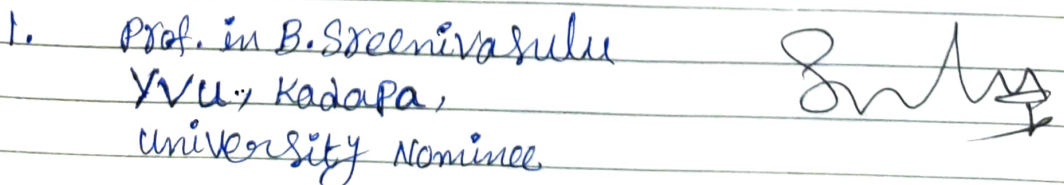 1. Prof. in B. Sreenivasulu
YVU., Kadapa,
University Nominee